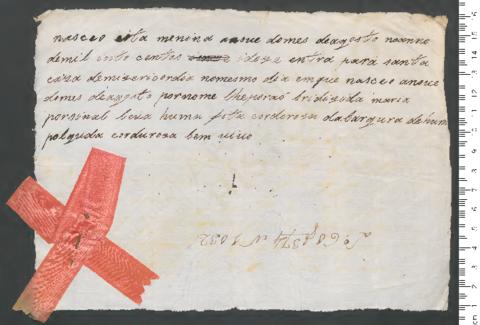 nasceo esta menina anoue domes deagosto noanno
demil oito centos idoze entra para santa
caza demizericordia nomesmo dia enque nasceo anoue
domes deagosto pornome lheporaõ bridigida maria
porsinal leua huma fita corderosa dalargura dehum
polguida cordurosa bem vivo
Lº 68 f 374 N 1032